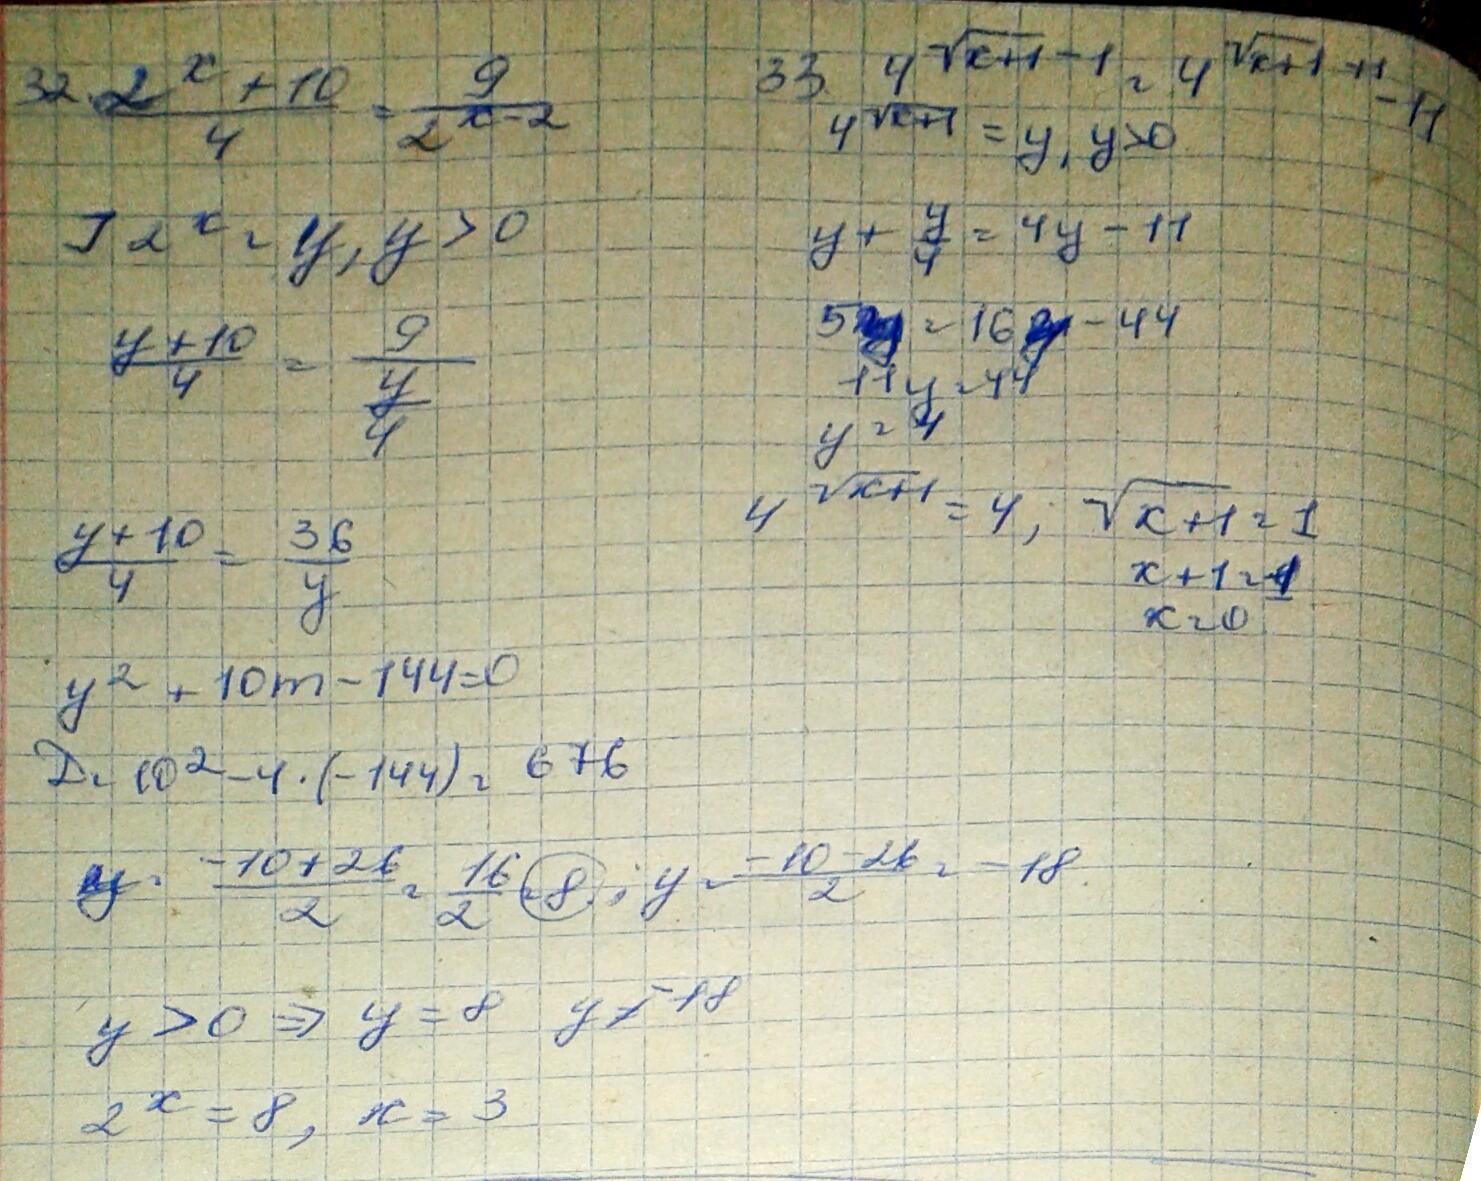 32. (2^x + 10)/4 = 9/(2^(x-2))
] 2^x = y, y > 0
(y+10)/4 = 9/(y/4)
(y+10)/4 = 36/y
y² + 10m - 144 = 0
D = 10² - 4·(-144) = 676
y = (-10+26)/2 = 16/2 = 8 ; y = (-10-26)/2 = -18
y > 0 ⇒ y = 8 y ≠ -18
2^x = 8, x = 3
33. 4^(√(x+1) - 1) = 4^(√(x+1) + 1) - 11
4^√(x+1) = y, y > 0
y + y/4 = 4y - 11
5y = 16y - 44
11y = 44
y = 4
4^√(x+1) = 4; √(x+1) = 1
x + 1 = 1
x = 0